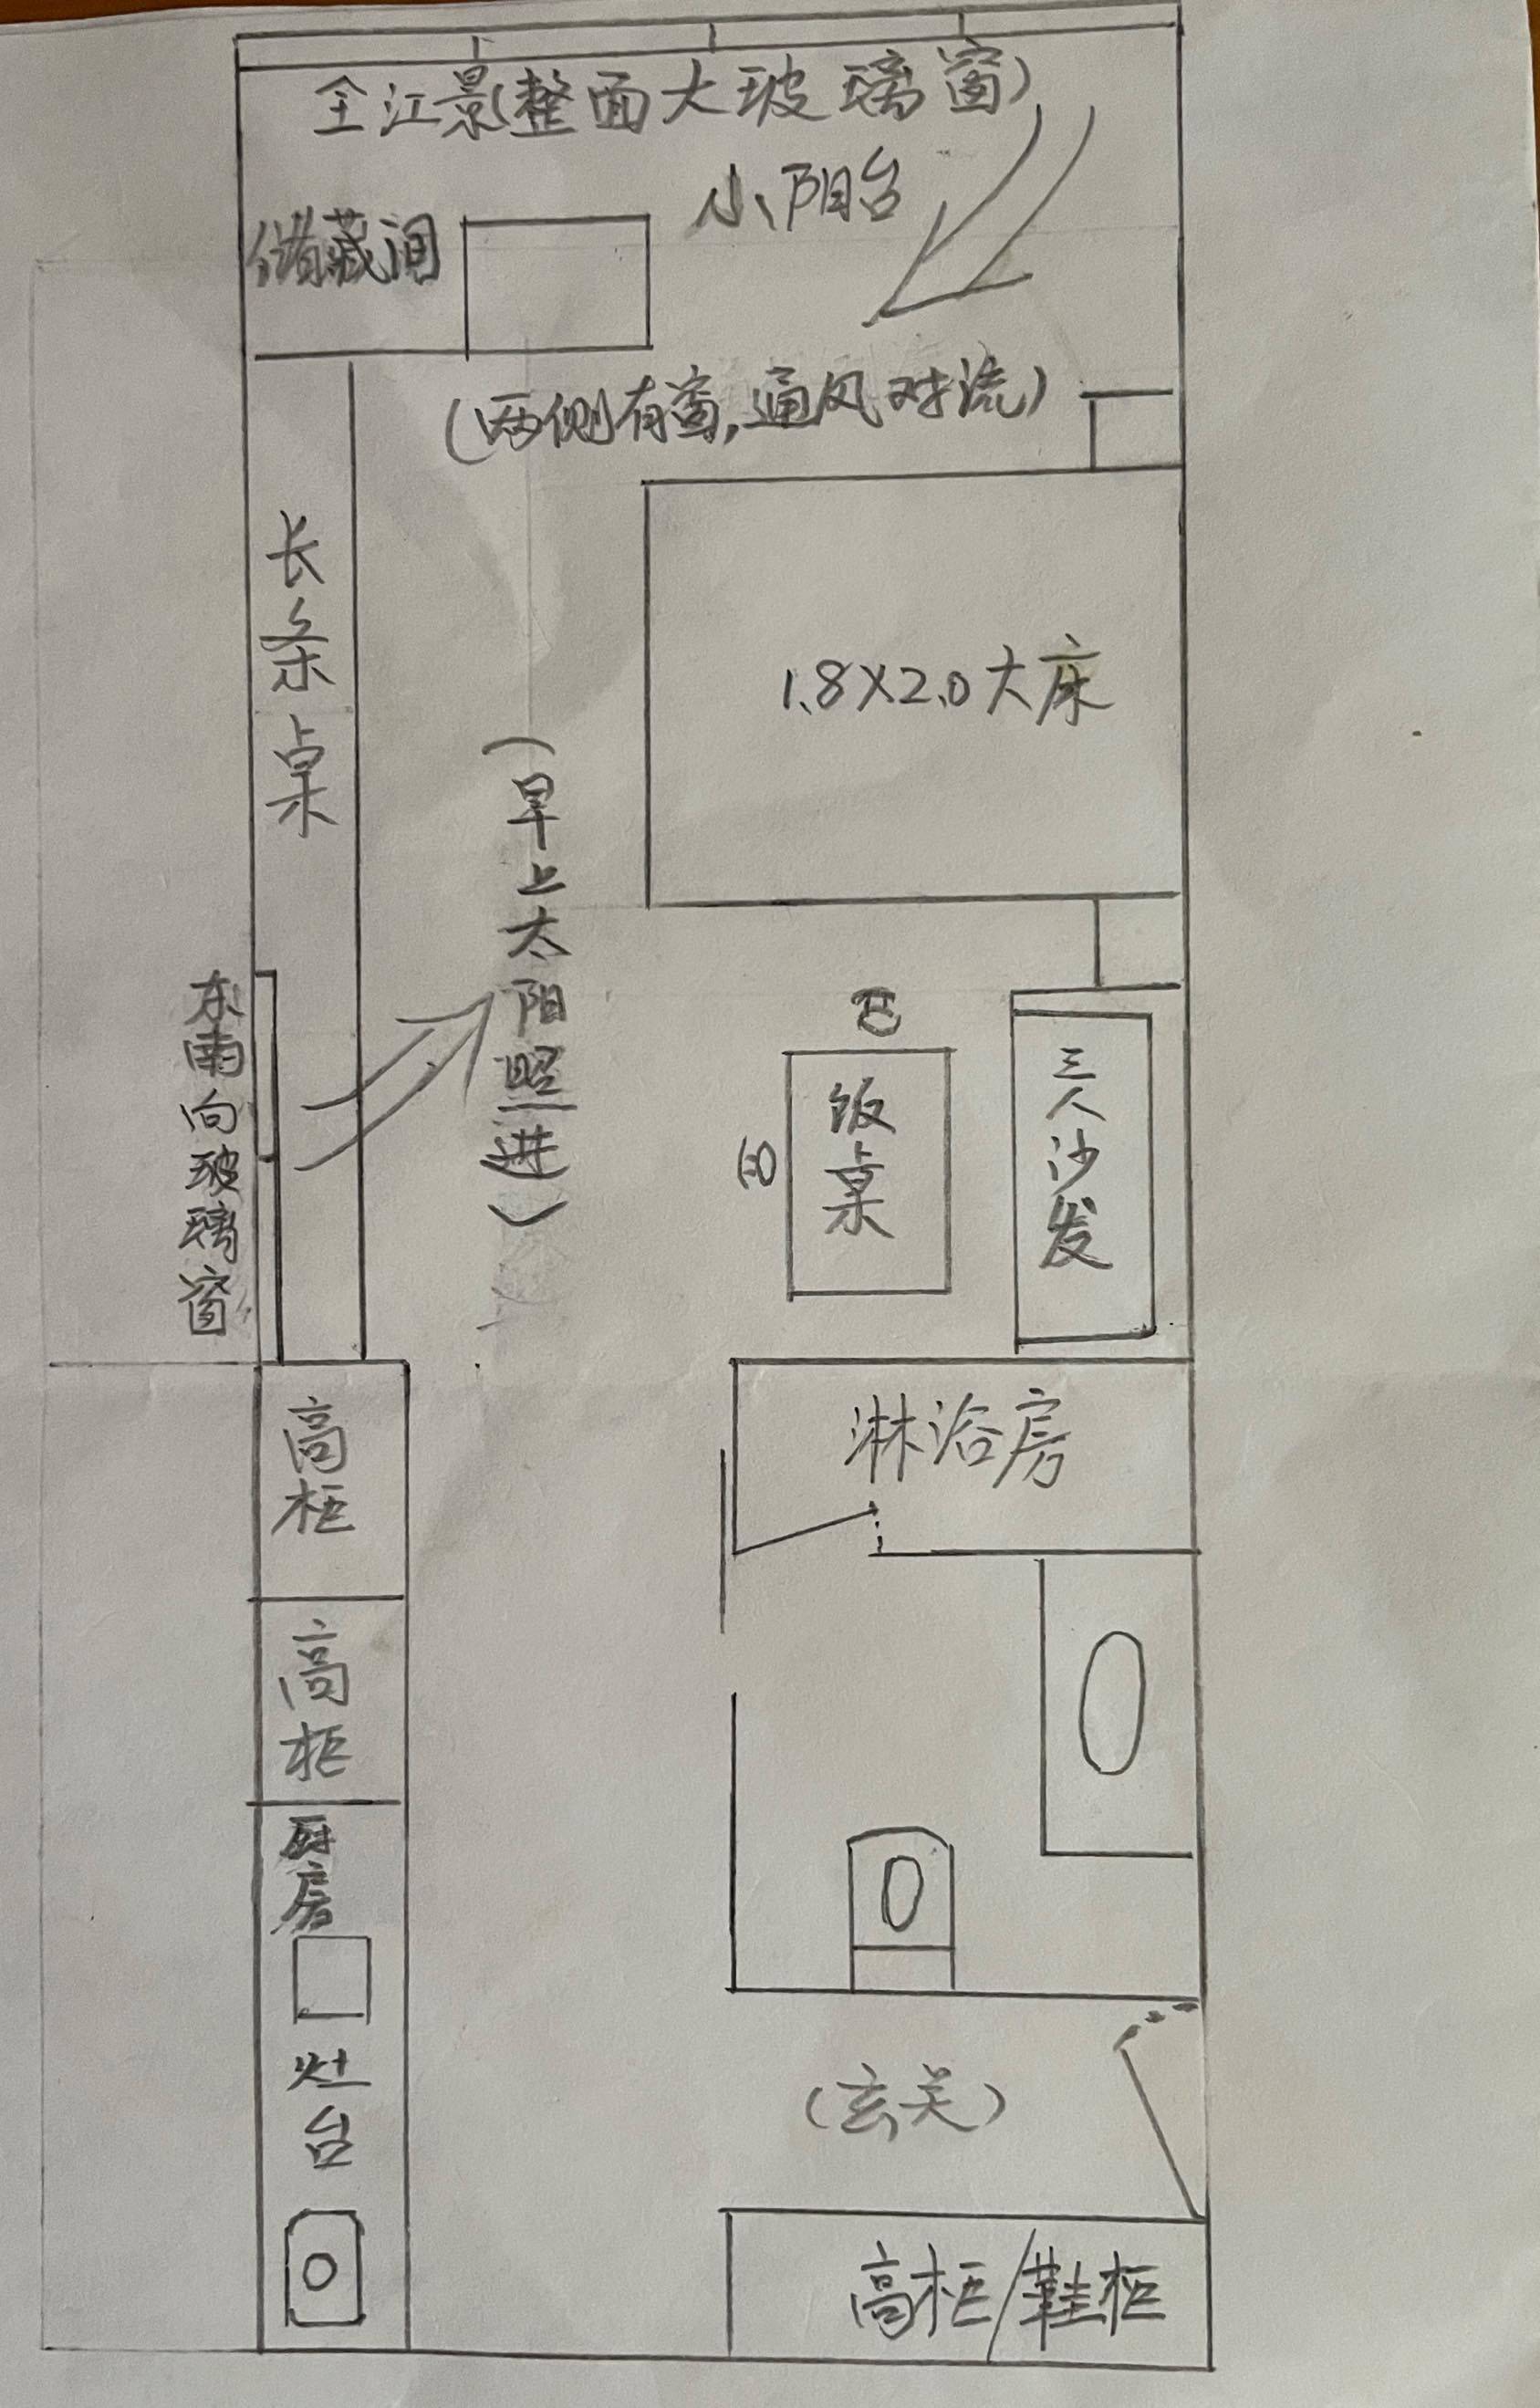 全江景整面大玻璃窗)
小阳台
储藏间
(两侧有窗,通风对流)
长条桌
1.8X2.0大床
(早上太阳照进)
东南向玻璃窗
饭桌
三人沙发
高柜
淋浴房
高柜
厨房
灶台
(玄关)
高柜/鞋柜